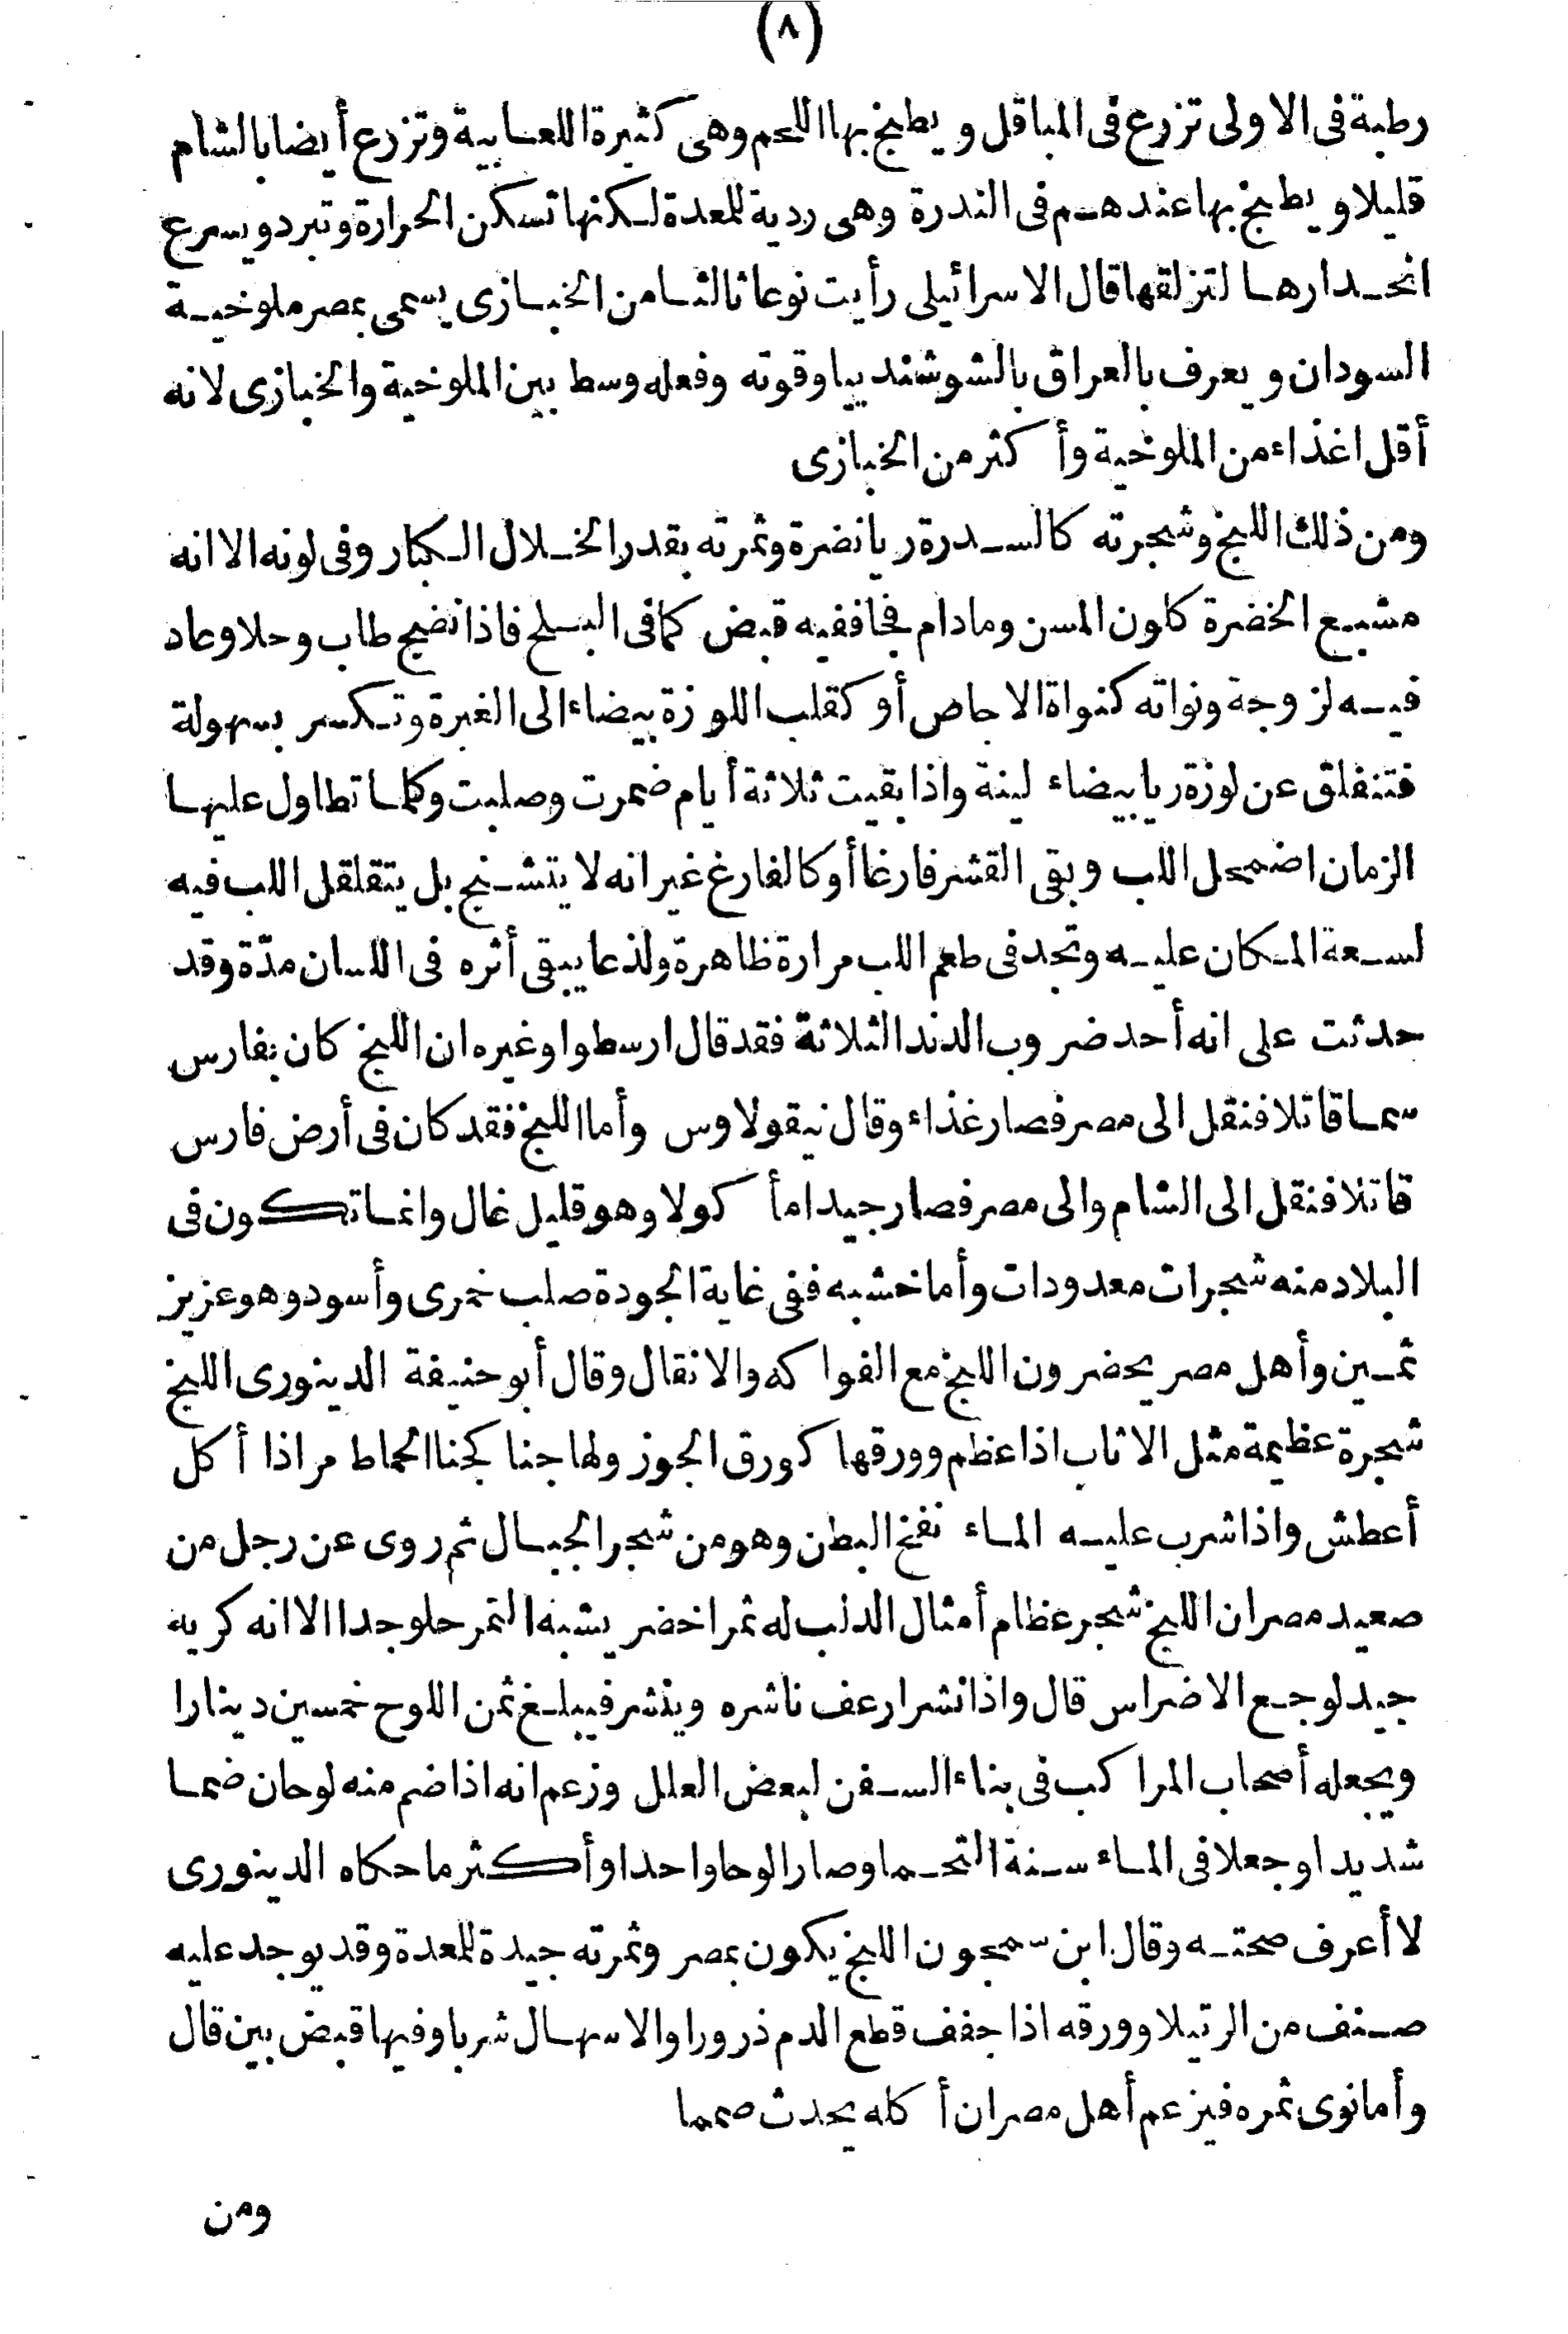 (٨)
رطبة فى الاولى تزرع فى المباقل ويطبخ بها اللحم وهى كثيرة اللعابية وتزرع أيضا بالشام
قليلا ويطبخ بها عندهم فى الندرة وهى ردية للمعدة لكنها تسكن الحرارة وتبرد ويسرع
انحدارها لتزلقها قال الاسرائيلى رأيت نوعا ثالثا من الخبازى يسمى بمصر ملوخية
السودان ويعرف بالعراق بالشوشنديبا وقوته وفعله وسط بين الملوخية والخبازى لانه
أقل اغذاء من الملوخية وأكثر من الخبازى
ومن ذلك اللبخ وشجرته كالسدرة ريا نضرة وثمرته بقدر الخلال الكبار وفى لونه الا انه
مشبع الخضرة كاون المسن ومادام فجا ففيه قبض كما فى البلح فاذا نضج طاب وحلا وعاد
فيه لزوجة ونواته كنواة الاجاص أو كقلب اللوزة بيضاء الى الغبرة وتكسر بسهولة
فتنفلق عن لوزة ريا بيضاء لينة واذا بقيت ثلاثة أيام ضمرت وصلبت وكلما تطاول عليها
الزمان اضمحل اللب وبقى القشر فارغا أو كالفارغ غير انه لا يتشنج بل يتقلقل اللب فيه
لسعة المكان عليه وتجد فى طعم اللب مرارة ظاهرة ولذعا يبقى أثره فى اللسان مدّة وقد
حدثت على انه أحد ضروب الدند الثلاثة فقد قال ارسطوا وغيره ان اللبخ كان بفارس
سما قاتلا فنقل الى مصر فصار غذاء وقال نيقولاوس وأما اللبخ فقد كان فى أرض فارس
قاتلا فنقل الى الشام والى مصر فصار جيدا مأكولا وهو قليل غال وانما تكون فى
البلاد منه شجرات معدودات وأما خشبه ففى غاية الجودة صلب خمرى وأسود وهو عزيز
ثمين وأهل مصر يحضرون اللبخ مع الفواكه والانقال وقال أبو حنيفة الدينورى اللبخ
شجرة عظيمة مثل الاثاب اذا عظم وورقها كورق الجوز ولها جنا كجنا الحماط مر اذا أكل
أعطش واذا شرب عليه الماء نفخ البطن وهو من شجر الجبال ثم روى عن رجل من
صعيد مصر ان اللبخ شجر عظام أمثال الدلب له ثمر اخضر يشبه التمر حلو جدا الا انه كريه
جيد لوجع الاضراس قال واذا نشر ارعف ناشره وينشر فيبلغ ثمن اللوح خمسين دينارا
ويجعله أصحاب المراكب فى بناء السفن لبعض العلل وزعم انه اذا ضم منه لوحان ضما
شديدا وجعلا فى الماء سنة التحما وصارا لوحا واحدا وأكثر ما حكاه الدينورى
لا أعرف صحته وقال ابن سمجون اللبخ يكون بمصر وثمرته جيدة للمعدة وقد يوجد عليه
صنف من الرتيلا وورقه اذا جفف قطع الدم ذرورا والاسهال شربا وفيها قبض بين قال
وأما نوى ثمره فيزعم أهل مصر ان أكله يحدث صمما
ومن